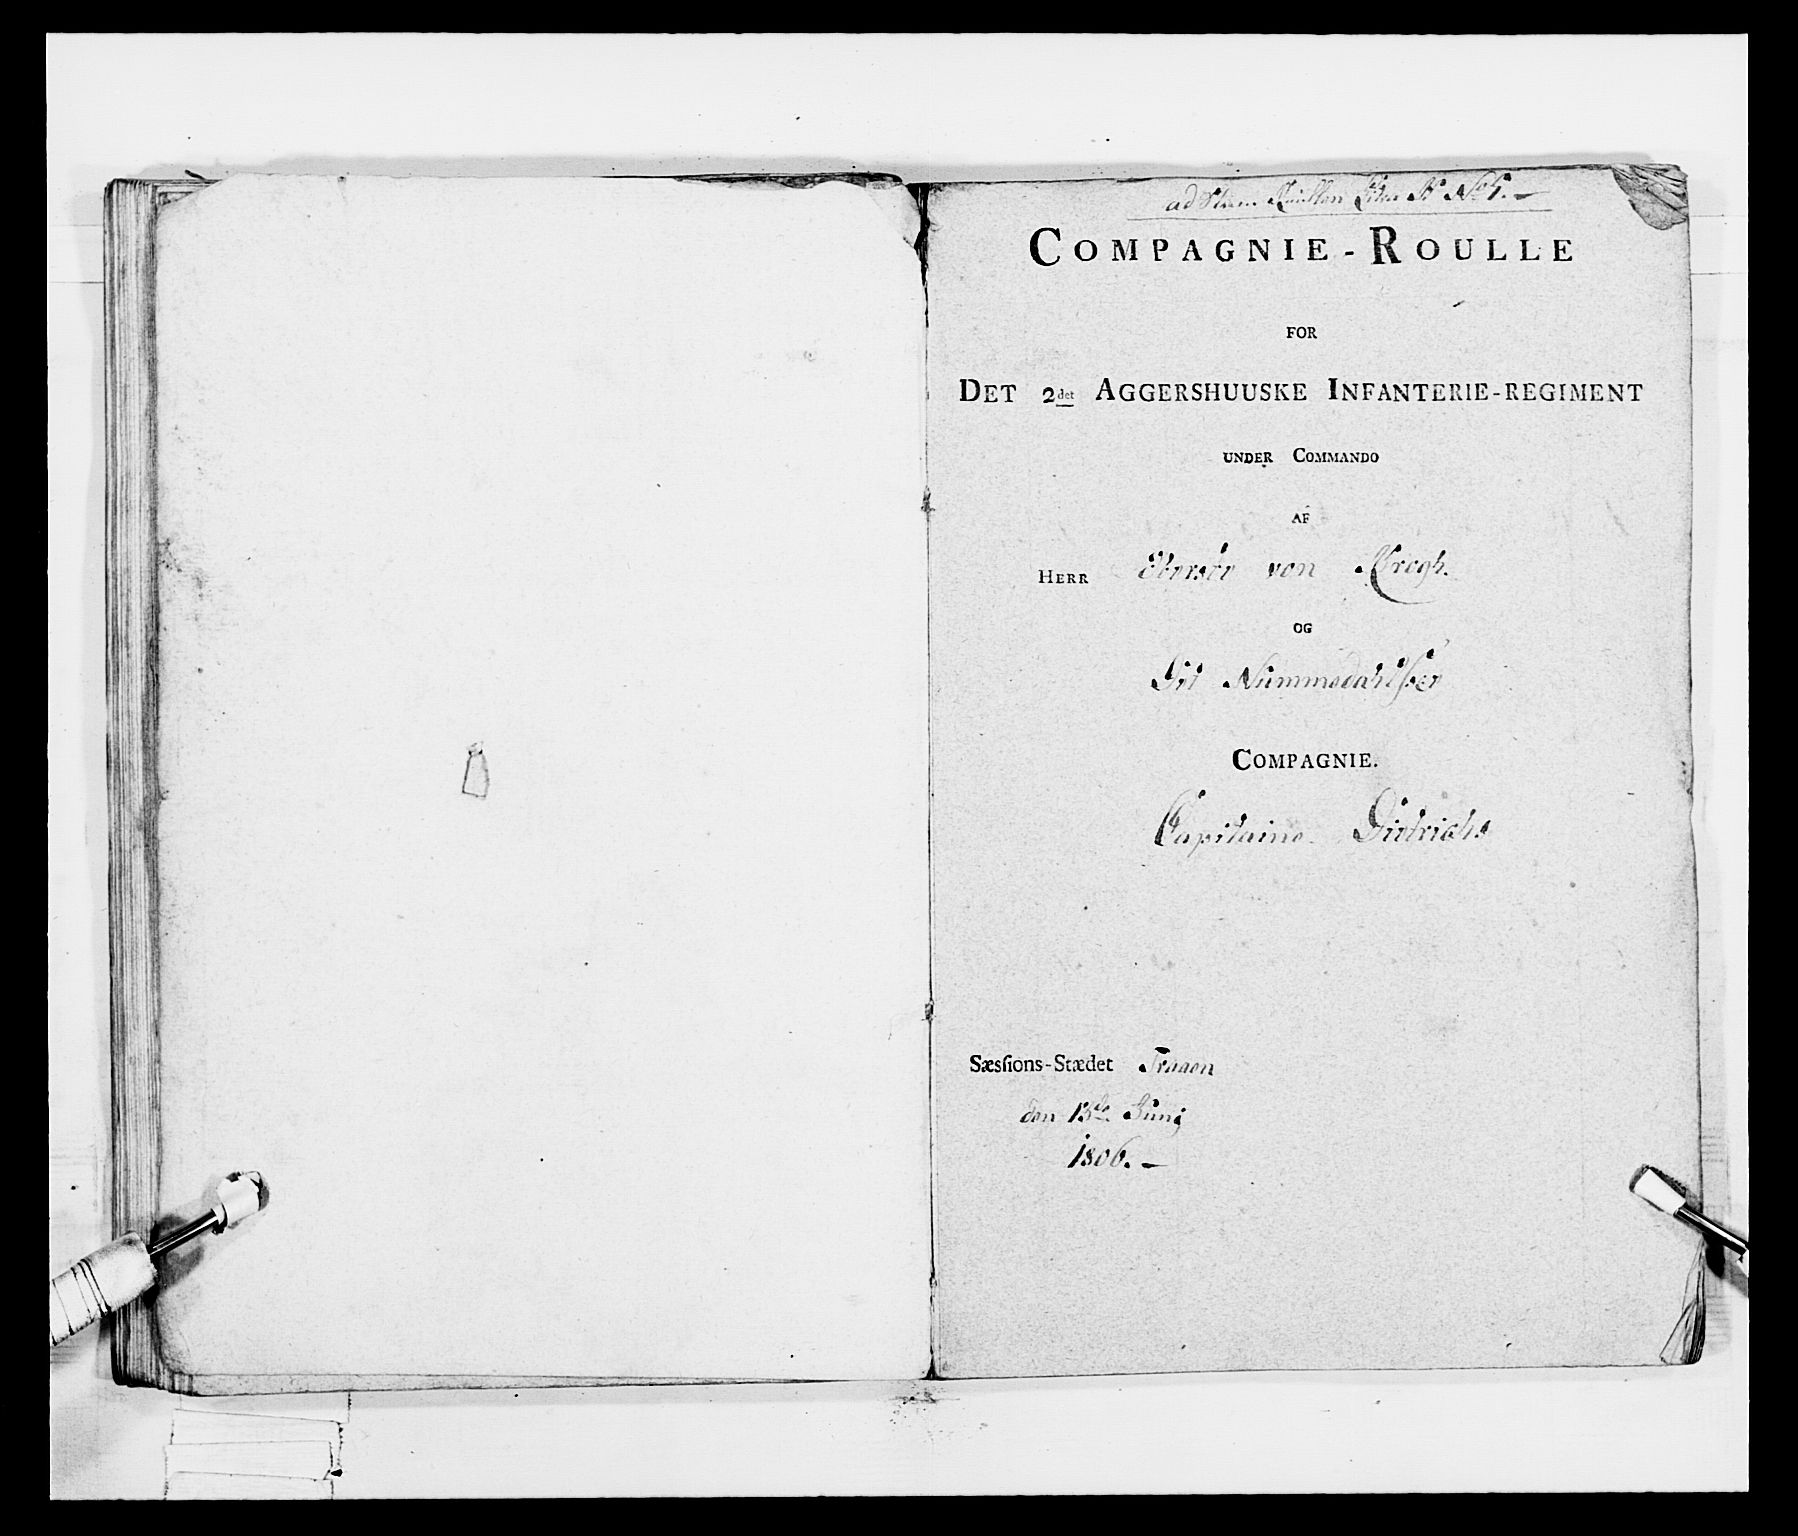 ad Stam Rullen Litra No 4. –
COMPAGNIE-ROULLE
FOR
DET 2det AGGERSHUUSKE INFANTERIE-REGIMENT
UNDER COMMANDO
AF
HERR Obersør von Krogh.
OG
Dit Nummedahlsker
COMPAGNIE.
Capitaine Ditrichs
Sæsſions-Stædet Traaen
den 13de Junj
1806. –